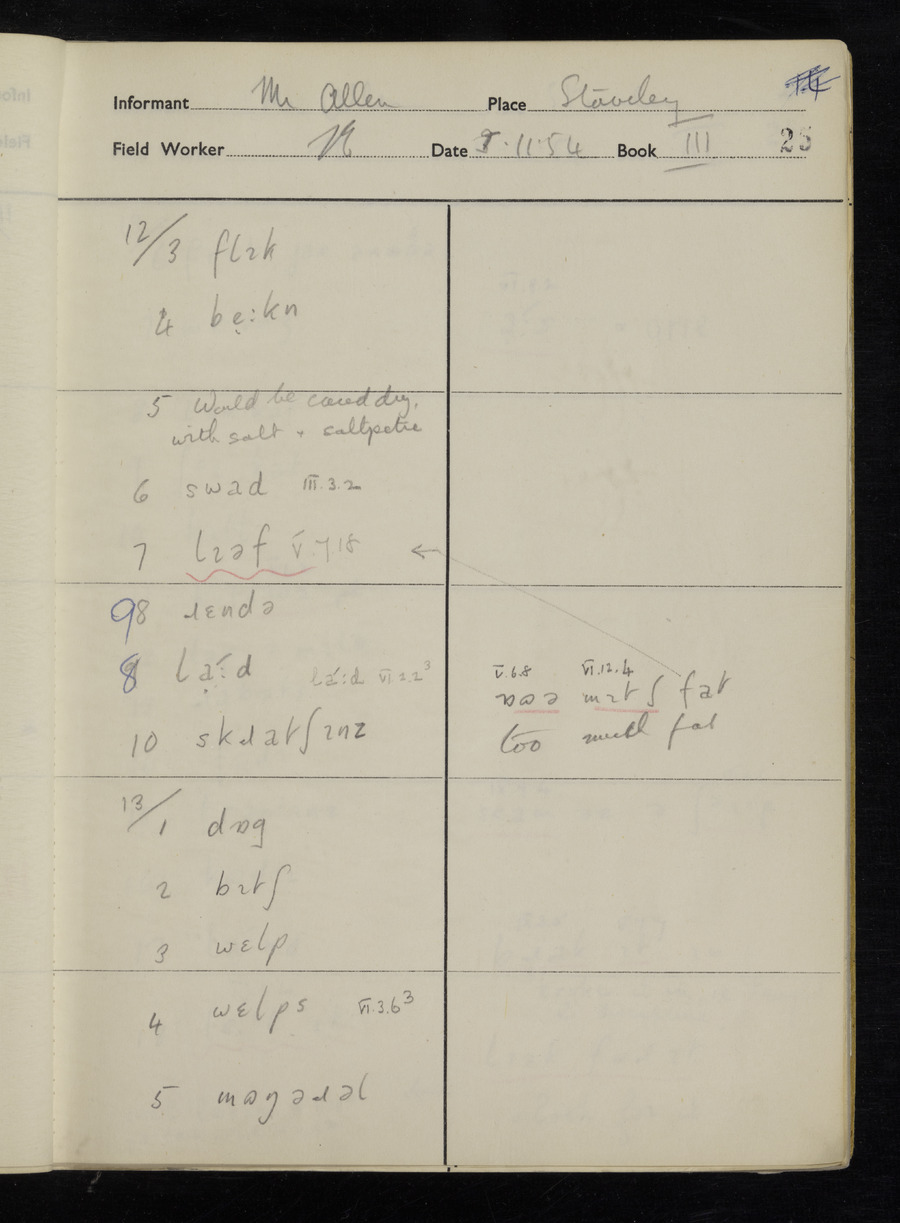 Informant Mr Allen Place Staveley
Field Worker Date 9.11.54 Book III 25
12/3 flɪk
4 bẹ:kn
5 Would be cured dry,
with salt + saltpetre
6 swad III.3.2
7 lɪəf V.7.18 ←
98 ɹɛndə
8 lạ:d la:d VI.2.2³
V.6.8 VI.12.4
mɪtʃ fat
too much fat
10 skɹatʃɪnz
13/1 dɒg
2 bɪtʃ
3 wɛlp
4 wɛlps VI.3.6³
5 mɒgəɹəl